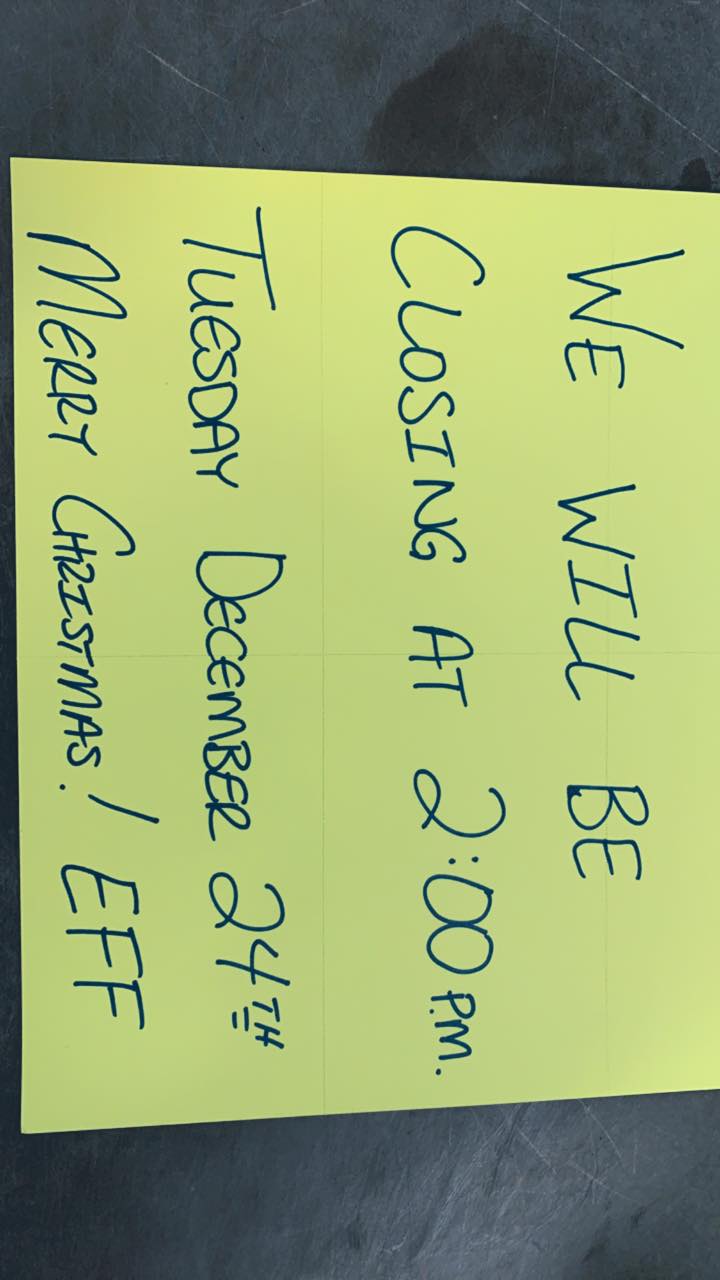 WE WILL BE
CLOSING AT 2:00 P.M.
TUESDAY DECEMBER 24TH
MERRY CHRISTMAS! EFF